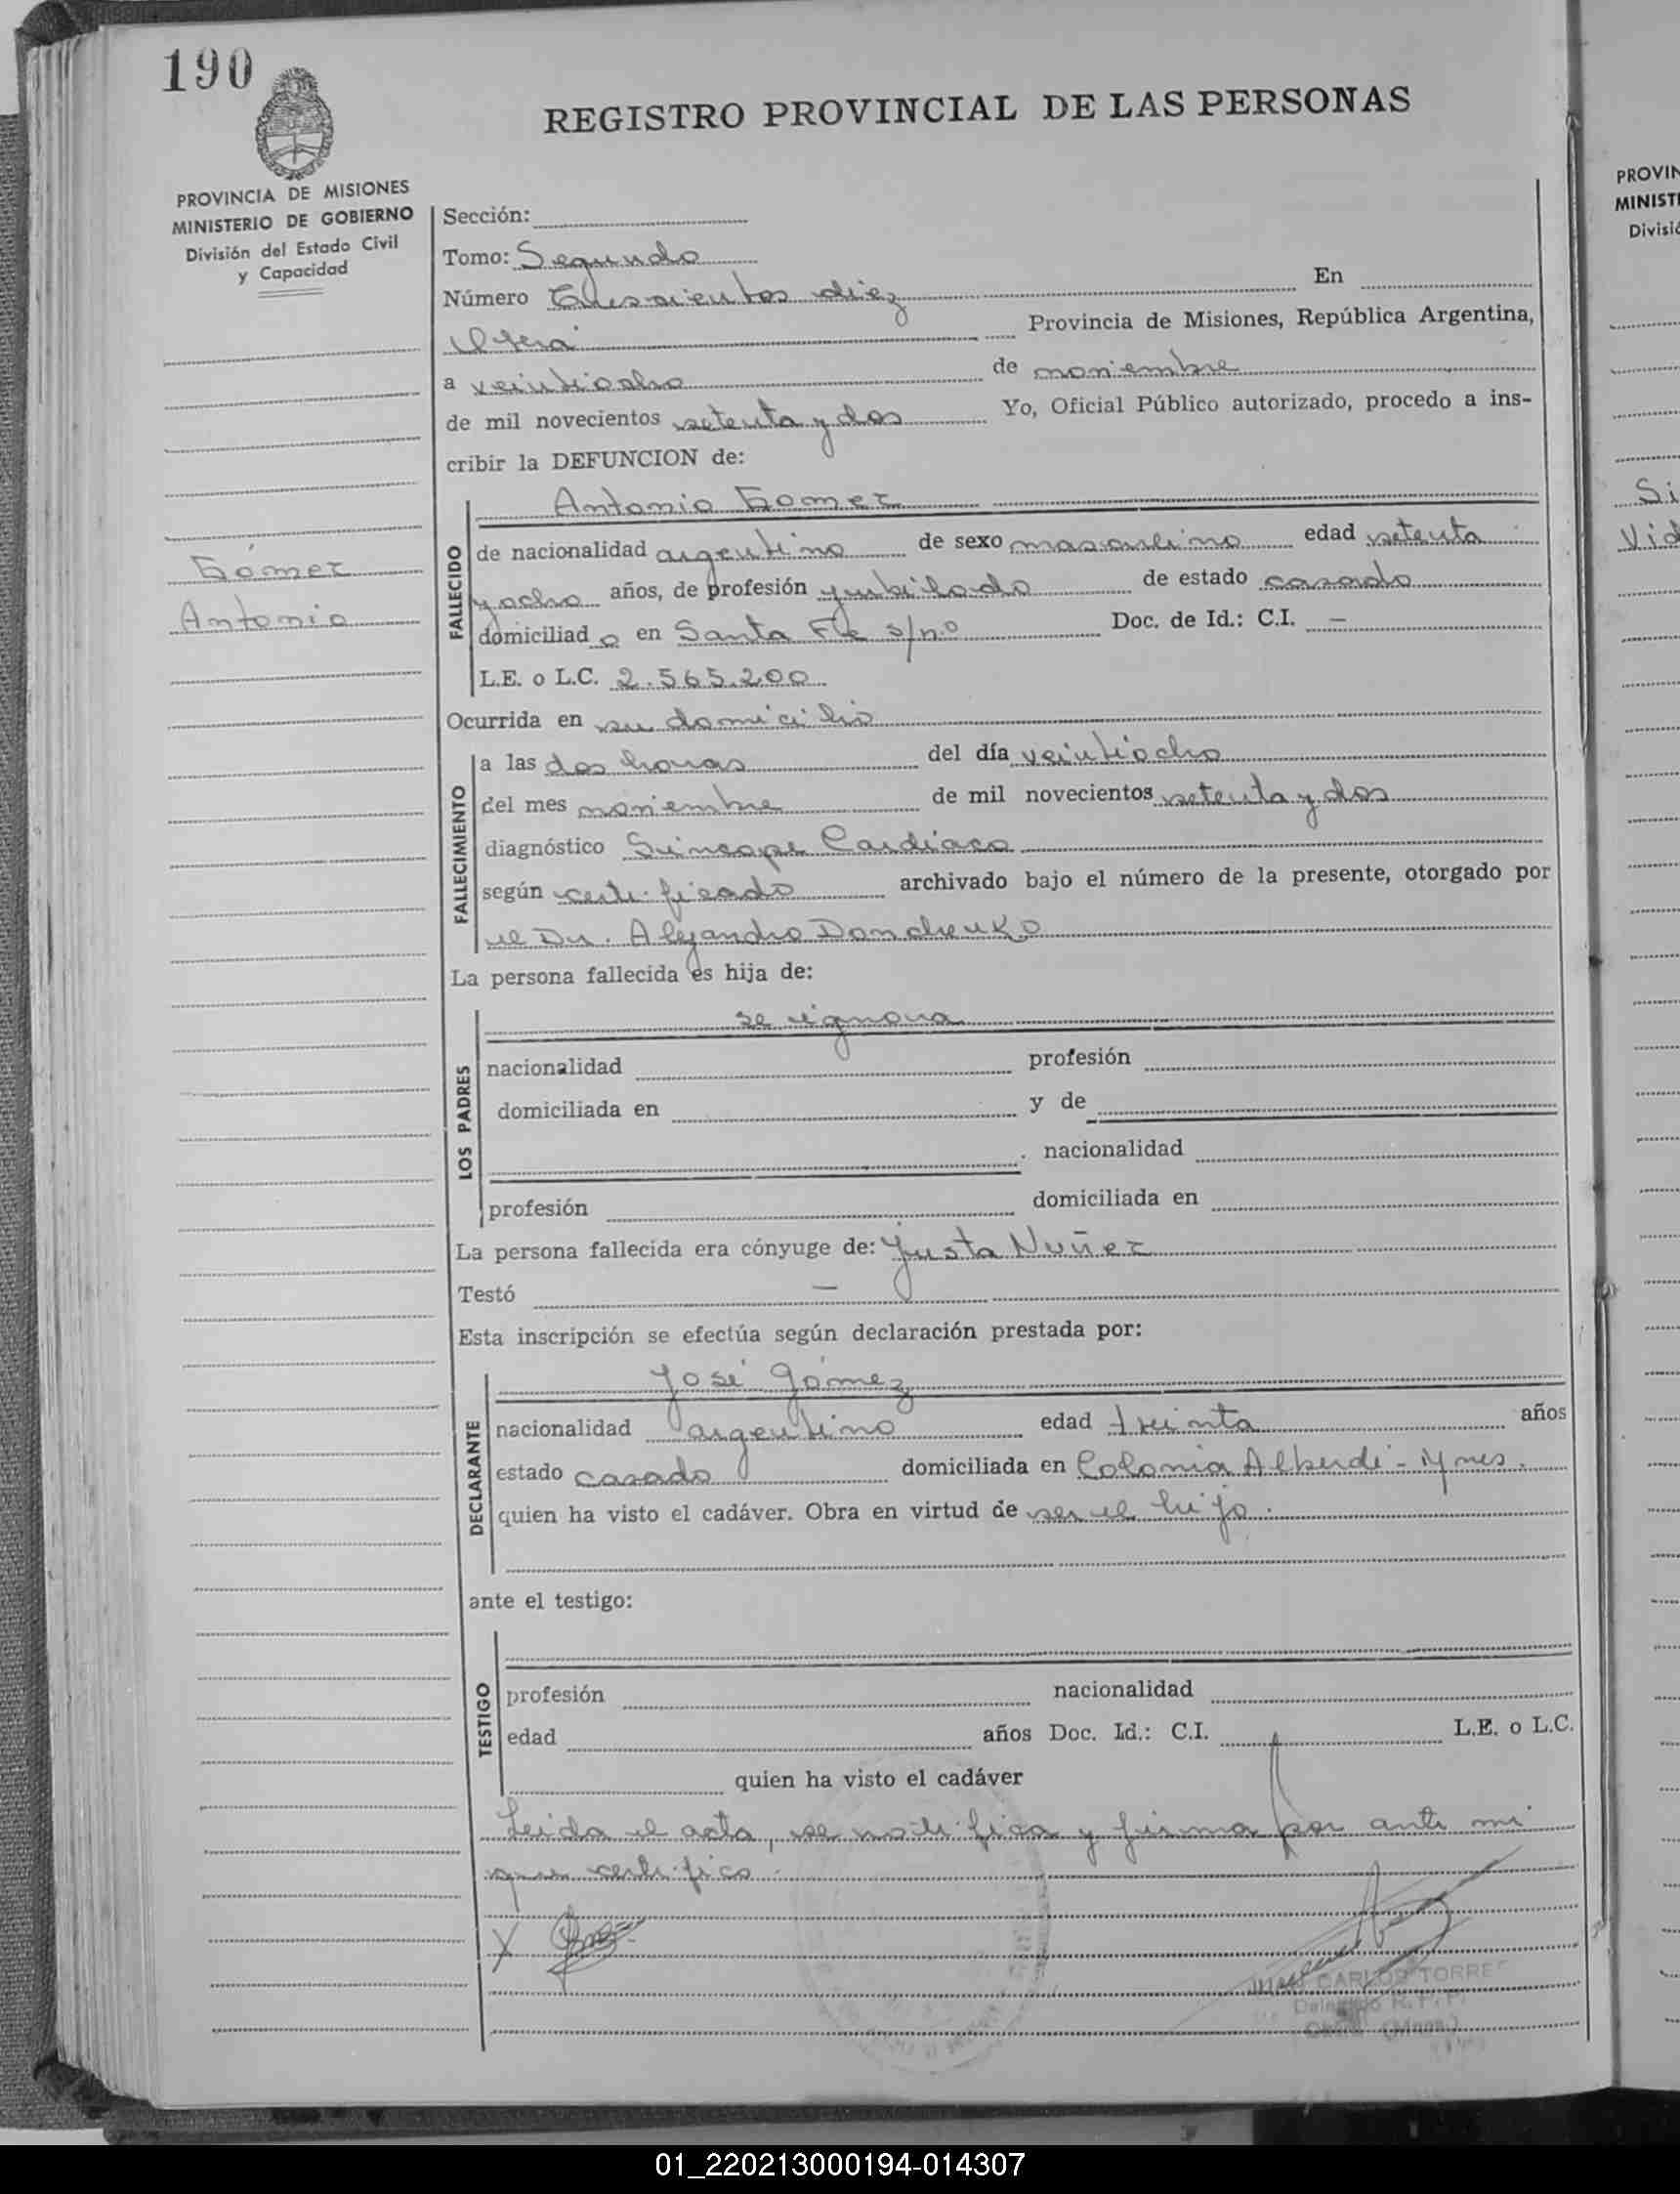 190
REGISTRO PROVINCIAL DE LAS PERSONAS
PROVINCIA DE MISIONES
MINISTERIO DE GOBIERNO
División del Estado Civil
y Capacidad
Gómez
Antonio
Sección:
Tomo: Segundo
Número Trescientos diez En
Oberá Provincia de Misiones, República Argentina,
a veintiocho de noviembre
de mil novecientos setenta y dos Yo, Oficial Público autorizado, procedo a ins-
cribir la DEFUNCION de:
FALLECIDO
Antonio Gomez
de nacionalidad argentino de sexo masculino edad setenta
y ocho años, de profesión jubilado de estado casado
domiciliad o en Santa Fe s/n.o Doc. de Id.: C.I. —
L.E. o L.C. 2.565.200
Ocurrida en su domicilio
FALLECIMIENTO
a las dos horas del día veintiocho
del mes noviembre de mil novecientos setenta y dos
diagnóstico Sincope Cardiaco
según certificado archivado bajo el número de la presente, otorgado por
el Dr. Alejandro Donchenko
La persona fallecida es hija de:
LOS PADRES
se ignora
nacionalidad profesión
domiciliada en y de
. nacionalidad
profesión domiciliada en
La persona fallecida era cónyuge de: Justa Nuñez
Testó —
Esta inscripción se efectúa según declaración prestada por:
DECLARANTE
José Gómez
nacionalidad argentino edad treinta años
estado casado domiciliada en Colonia Alberdi - Mnes.
quien ha visto el cadáver. Obra en virtud de ser el hijo.
ante el testigo:
TESTIGO
profesión nacionalidad
edad años Doc. Id.: C.I. L.E. o L.C.
quien ha visto el cadáver
Leida el acta, se notifica y firma por ante mi
que certifico.
X
CARLOS TORRES
Delegado R.P.P.
Oberá (Mnes.)
PROVIN
MINIST
Divisió
Si
Vid
01_220213000194-014307